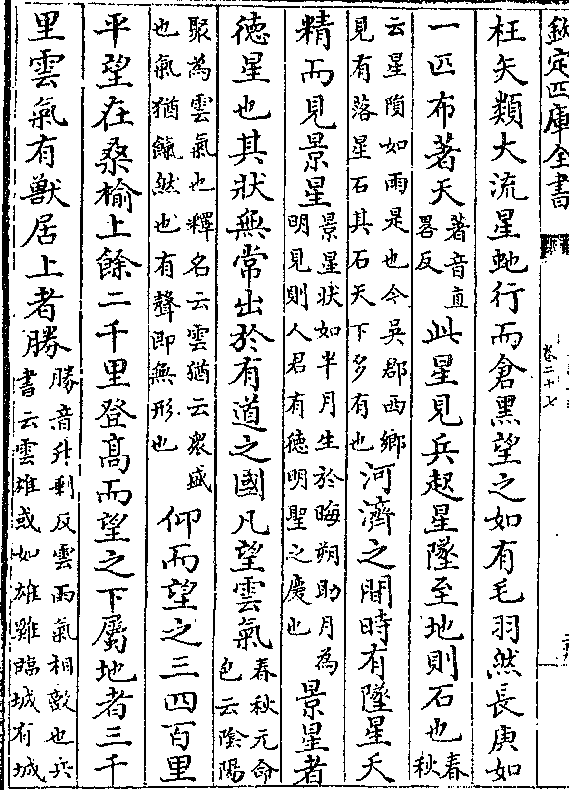 欽定四庫全書
卷二十七
枉矢類大流星虵行而倉黑望之如有毛羽然長庚如
一匹布著天著音直畧反此星見兵起星墜至地則石也春秋
云星隕如雨是也今吳郡西鄉見有落星石其石天下多有也河濟之間時有墜星天
精而見景星景星狀如半月生於晦朔助月為明見則人君有徳明聖之慶也景星者
徳星也其狀無常出於有道之國凡望雲氣春秋元命包云陰陽
聚為雲氣也釋名云雲猶云衆盛也氣猶餼然也有聲即無形也仰而望之三四百里
平望在桑榆上餘二千里登高而望之下屬地者三千
里雲氣有獸居上者勝勝音升剩反雲雨氣相敵也兵書云雲雄或如雄雞臨城有城